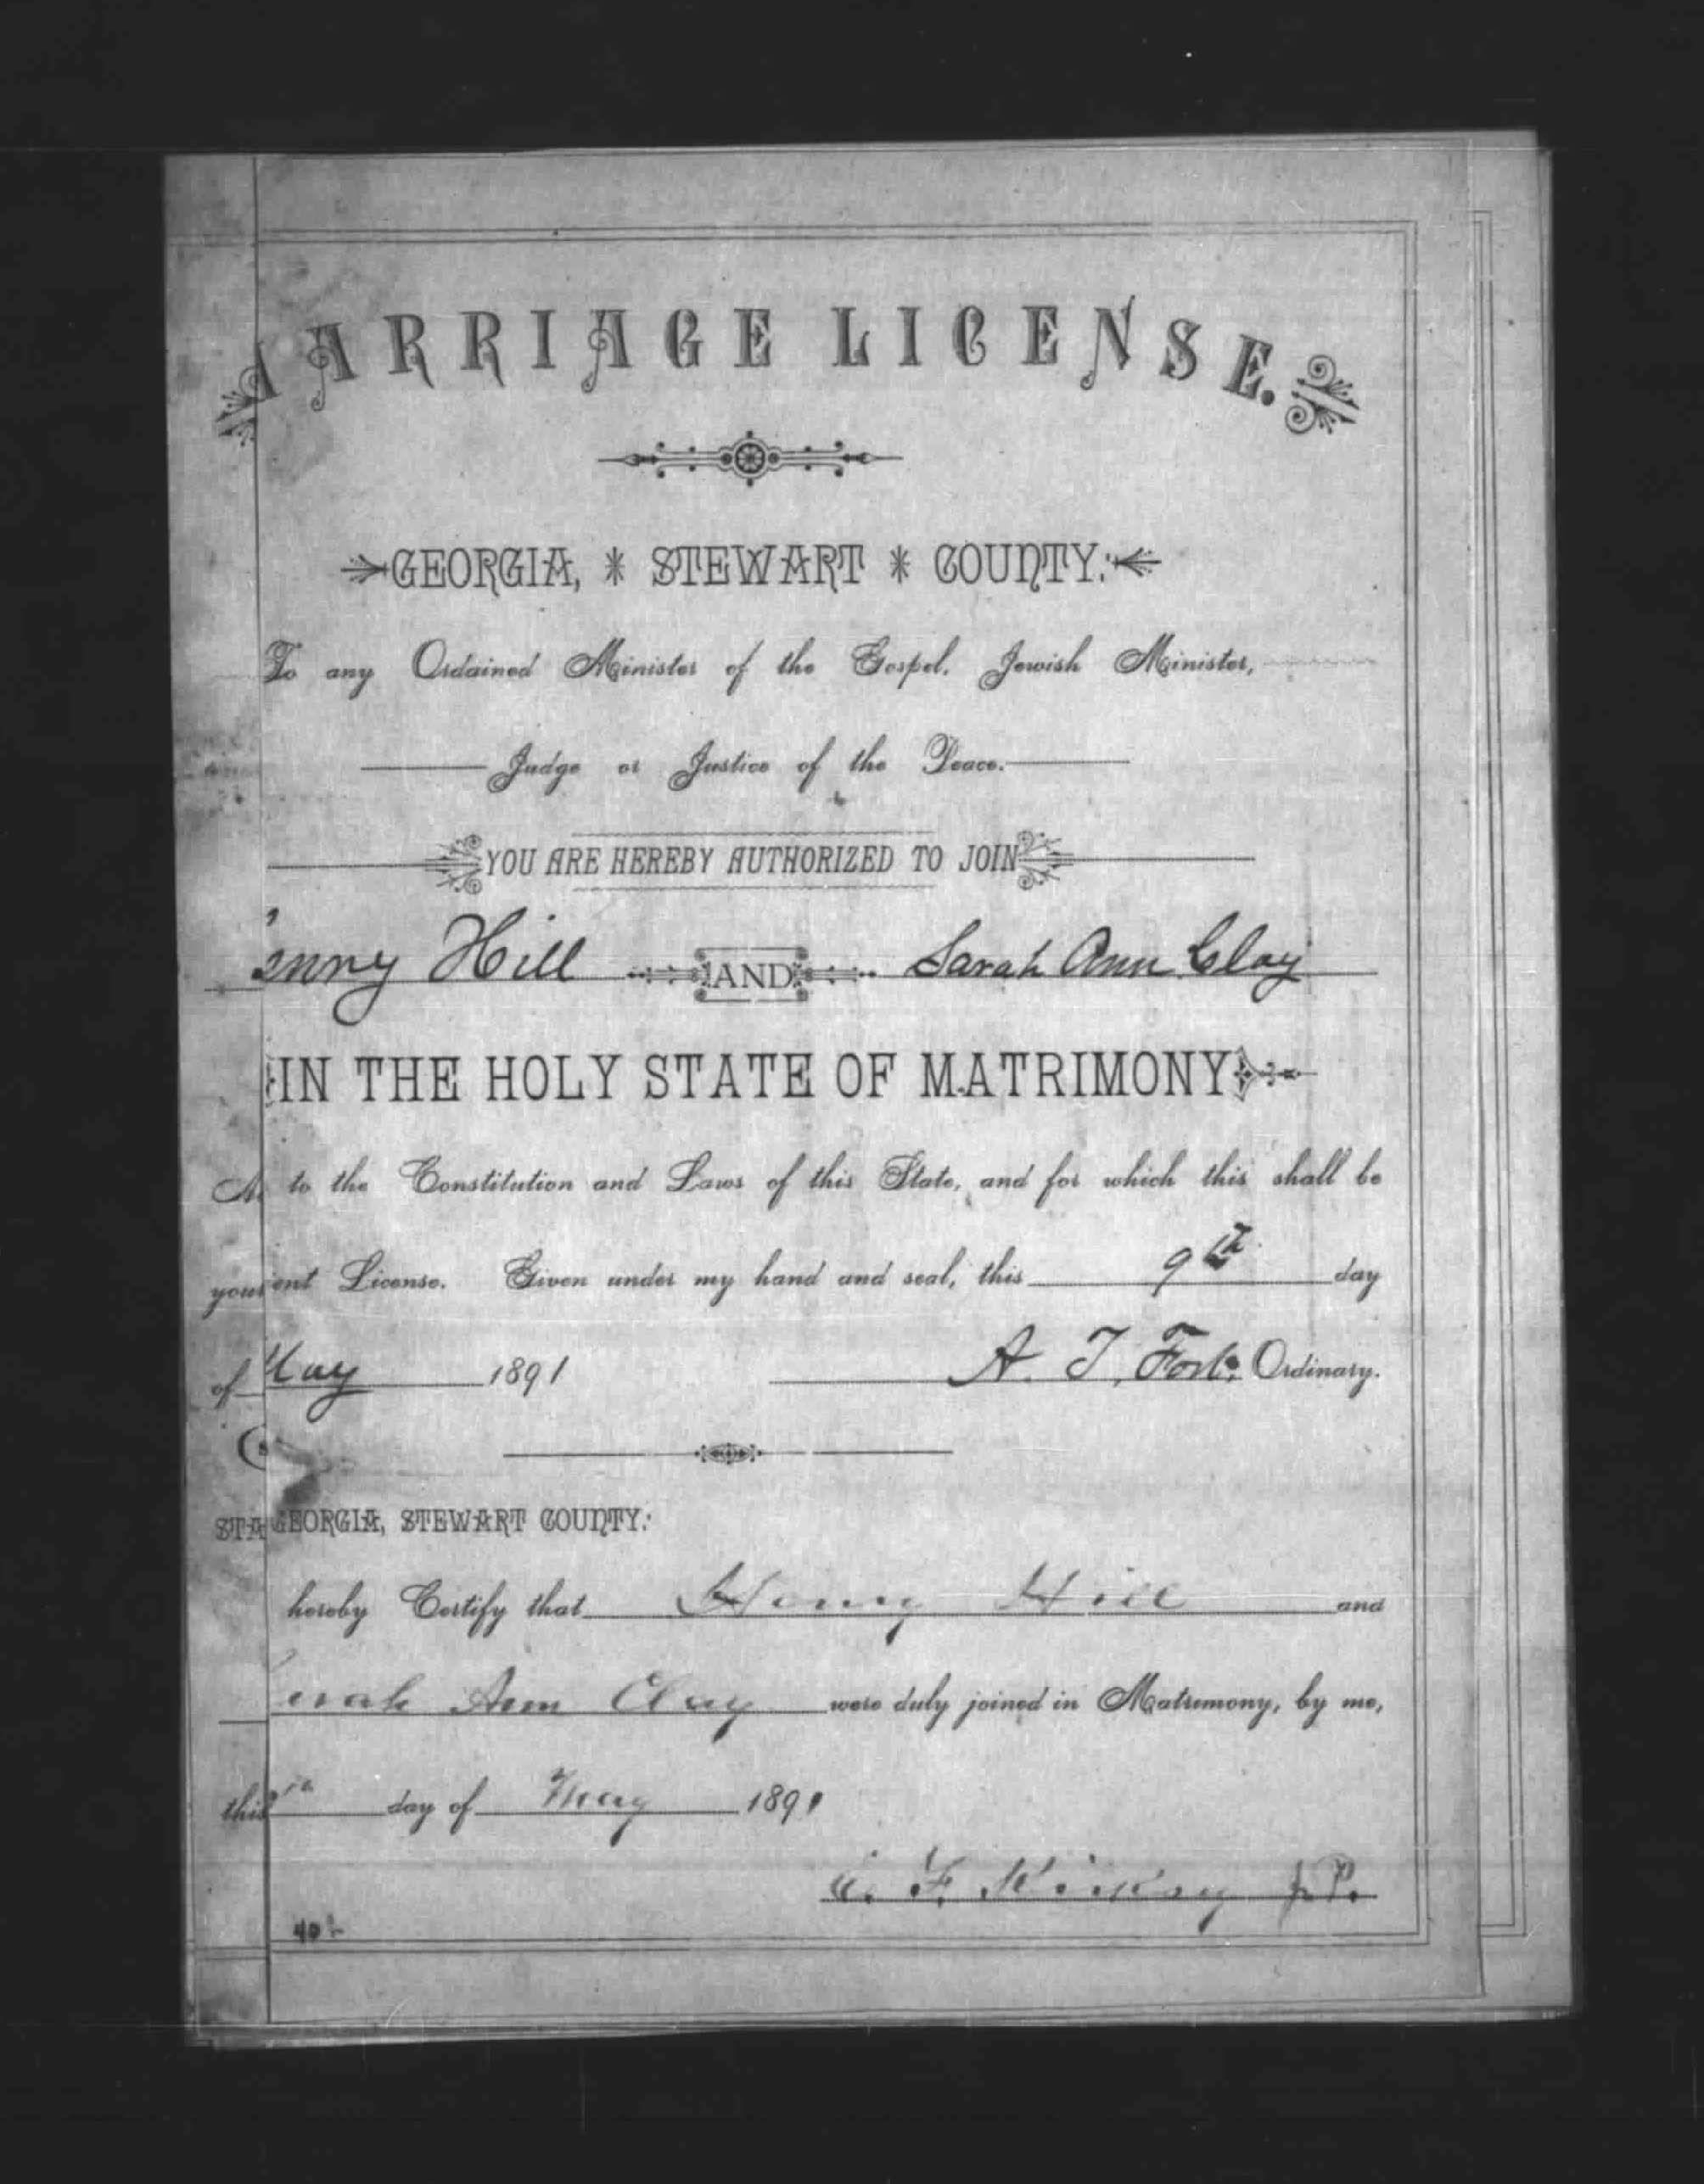 ARRIAGE LICENSE.
GEORGIA, * STEWART * COUNTY:
To any Ordained Minister of the Gospel, Jewish Minister,
Judge or Justice of the Peace.
YOU ARE HEREBY AUTHORIZED TO JOIN
enry Hill AND Sarah Ann Clay
IN THE HOLY STATE OF MATRIMONY
to the Constitution and Laws of this State, and for which this shall be
your ent License. Given under my hand and seal, this 9th day
of May 1891 A. T. Fort, Ordinary.
STA GEORGIA, STEWART COUNTY:
hereby Certify that Henry Hill and
arah Ann Clay were duly joined in Matrimony, by me,
this day of May 1891
F. J.P.